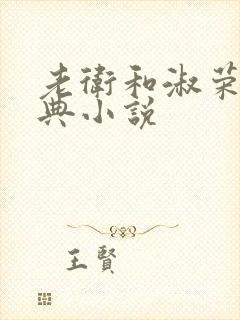 老衛和淑荣
典小說
王賢